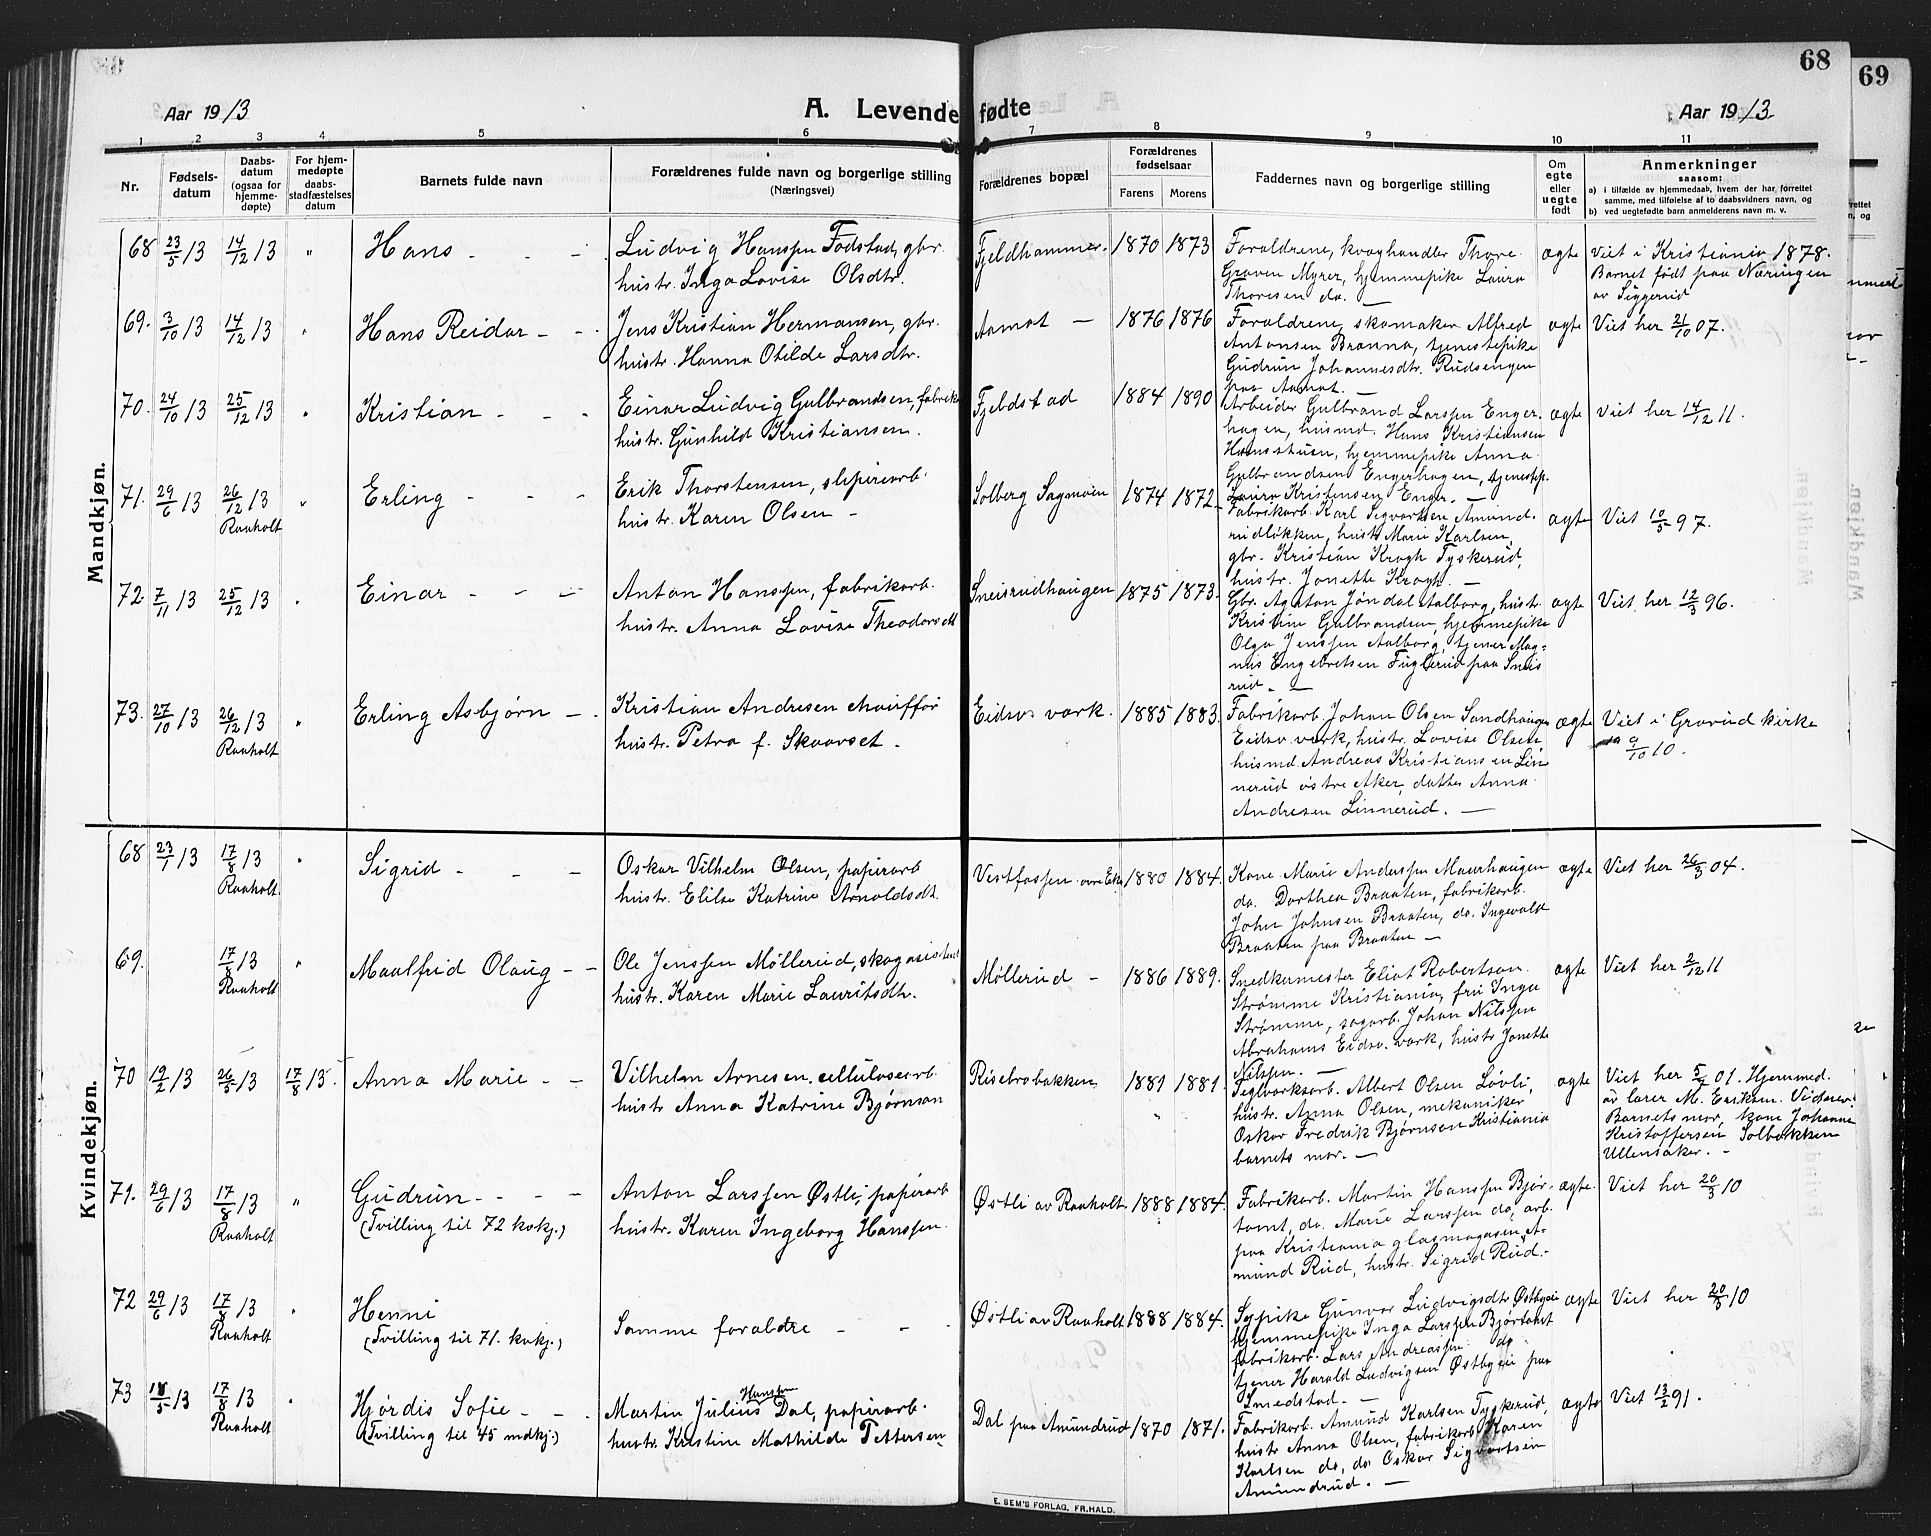 68
69
Aar 1913
A. Levendefødte
Aar 1913
1 2 3 4 5 6 7 8 9 10 11
Nr.
Fødselsdatum
Daabsdatum (ogsaa for hjemmedøpte)
For hjemmedøpte daabsstadfæstelses datum
Barnets fulde navn
Forældrenes fulde navn og borgerlige stilling (Næringsvei)
Forældrenes bopæl
Forældrenes fødselsaar
Farens Morens
Faddernes navn og borgerlige stilling
Om egte eller uegte født
Anmerkninger
saasom:
a) i tilfælde av hjemmedaab, hvem der har forrettet samme, med tilføielse af to daabsvidners navn, og
b) ved uegtefødte barn anmelderens navn m. v.
Mandkjøn.
68 23/5 13 14/12 13 " Hans - - -
Ludvig Hanssen Fodstad, gbr.
hustr. Inga Lovise Olsdtr.
Fjeldhammer. 1870 1873
Forældrene, kvæghandler Thore
Graven Myrer, hjemmepike Laura
Thoresen do. —
ægte
Viet i Kristiania 1878.
Barnet født paa Næringen
av Siggerud
69. 3/10 13 14/12 13 " Hans Reidar - -
Jens Kristian Hermansen, gbr.
hustr. Hanna Otilde Larsdtr.
Aamot — 1876 1876
Forældrene, skomaker Alfred
Antonsen Brænna, tjenestepike
Gudrun Johannesdtr. Rudsengen
paa Aamot. —
ægte
Viet her 21/10 07.
70. 24/10 13 25/12 13 " Kristian - - -
Einar Ludvig Gulbrandsen, fabrik
hustr. Gunhild Kristiansen.
Fjeldstad 1884 1890
Arbeider Gulbrand Larssen Enger-
hagen, husmd. Hans Kristiansen
Hansstuen, hjemmepike Anna
Gulbrandsen Engerhagen, tjenestep.
Laura Kristensen Enger. —
ægte
Viet her 14/12 11.
71. 29/6 13 26/12 13 Raaholt " Erling - - -
Erik Thorstensen, sliperiarb.
hustr. Karen Olsen -
Solberg Sagmoen 1874 1872
Fabrikarb. Karl Sigvartsen Amund-
rudløkken, hustr. Marie Karlsen,
gbr. Kristian Krogh Tyskerud,
hustr. Jonette Krogh. —
ægte
Viet 10/5 97.
72. 7/11 13 25/12 13 " Einar - - -
Anton Hanssen, fabrikarb.
hustr. Anna Lovise Theodorsdtr
Sneisrudhaugen 1875 1873.
Gbr. Agaton Jøndal Aalborg, hustr.
Kristine Gulbrandsen, hjemmepike
Olga Jenssen Aalborg, tjener Mag-
nus Engebretsen Fuglerud paa Sneis
rud. —
ægte
Viet her 12/3 96.
73. 27/10 13 26/12 13 Raaholt " Erling Asbjørn - -
Kristian Andresen chauffør
hustr. Petra f. Skaarset -
Eidsvs værk. 1885 1883.
Fabrikarb. Johan Olsen Sandhaugen
Eidsv. værk, hustr. Lovise Olsen,
husmd. Andreas Kristiansen Lin-
nerud østre Aker, datter Anna
Andresen Linnerud. —
ægte
Viet i Grorud kirke
9/10 10.
Kvindekjøn.
68 23/1 13 17/8 13 Raaholt " Sigrid - - -
Oskar Vilhelm Olsen, papirarb
hustr. Elise Katrine Arnoldsdt.
Vestfossen øvre Eker 1880 1884.
Kone Marie Anderssen Maurhaugen
do. Dorthea Braaten, fabrikarb.
John Johnsen Braaten, do. Ingevald
Braaten paa Braaten —
ægte
Viet her 26/3 04.
69. 17/8 13 Raaholt " Maalfrid Olaug - -
Ole Jenssen Møllerud, skogasistent
hustr. Karen Marie Lauritsdtr.
Møllerud - 1886 1889.
Snedkermester Eliot Robertson
Strømme Kristiania, fru Inga
Strømme, sagarb. Johan Nilssen
Abrahams Eidsv. værk, hustr. Jonette
Nilssen. —
ægte
Viet her 2/12 11
70 19/2 13 26/5 13 17/8 13. Anna Marie - -
Vilhelm Arnesen, cellulosearb
hustr Anna Katrine Bjørnson
Risebrobakken 1881 1881.
Teglværksarb. Albert Olsen Løvli,
hustr. Anna Olsen, mekaniker
Oskar Fredrik Bjørnsen Kristiania
barnets mor. —
ægte
Viet her 01. Hjemmed.
av lærer M. Eriksen. Vidner:
Barnets mor, kone Johanne
Kristoffersen Solbakken
Ullensaker. -
71. 29/6 13 17/8 13 Raaholt " Gudrun - - - -
(Tvilling til 72 kvkj.)
Anton Larssen Østli, papirarb
hustr. Karen Ingeborg Hanssen
Østli av Raaholt 1888 1884.
Fabrikarb. Martin Hanssen Bjør-
tomt, do. Marie Larssen do, arb.
paa Kristiania glasmagasin A-
mund Rud, hustr. Sigrid Rud. -
ægte.
Viet her 20/3 10
72 29/6 13 17/8 13 Raaholt " Henni
(Tvilling til 71. kvkj.)
Samme forældre - - -
Østli av Raaholt 1888 1884.
Sypike Gunvor Ludvigsdtr Østbyeie
hjemmepike Inga Larssen Bjørtomt
fabrikarb. Lars Andreassen do
tjener Harald Ludvigsen Østbyeie paa
Smedstad. —
ægte
Viet her 20/3 10
73 18/5 13 17/8 13 Raaholt " Hjørdis Sofie - -
(Tvilling til 45 mdkj.)
Hanssen
Martin Julius Dal, papirarb.
hustr. Kristine Mathilde Pettersen
Dal paa Amundrud 1870 1871.
Fabrikarb. Amund Karlsen Tyskerud,
hustr Anna Olsen, fabrikarb. Karen
Karlsen do, do Oskar Sigvartsen
Amundrud. —
ægte
Viet 13/2 91.
E. SEM'S FORLAG, FR.HALD.